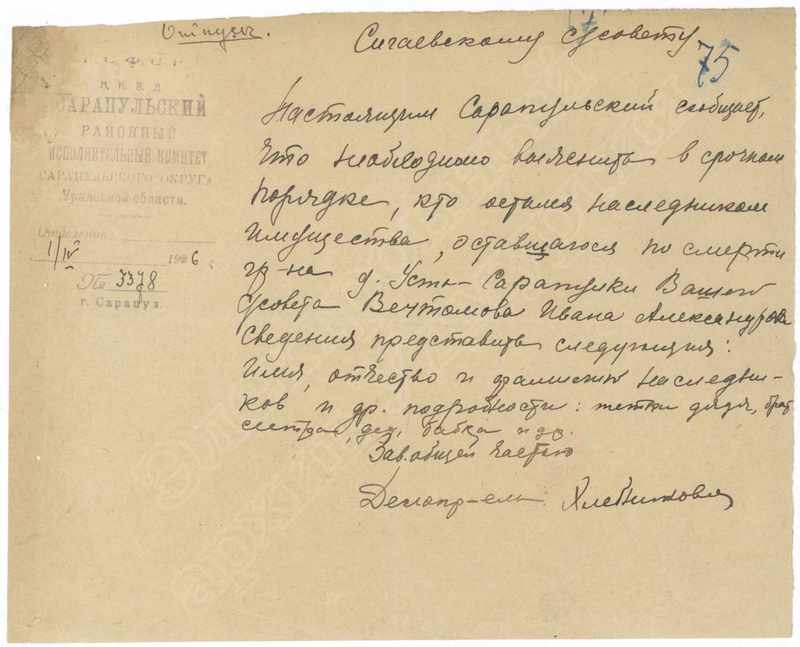 Отпуск.
Сигаевскому с/совету
75
Р.С.Ф.С.Р.
Н. К. В. Д.
САРАПУЛЬСКИЙ
РАЙОННЫЙ
ИСПОЛНИТЕЛЬНЫЙ КОМИТЕТ
САРАПУЛЬСКОГО ОКРУГА
Уральской области.
Отделение
1/IV 1926 г.
№ 3378
г. Сарапул.
Настоящим Сарапульский сообщает,
что необходимо выяснить в срочном
порядке, кто остался наследником
имущества, оставшагося по смерти
гр-на д. Усть-Сарапулки Вашего
с/совета Вечтомова Ивана Александров.
Сведения представить следующия:
Имя, отчество и фамилию наследни-
ков и др. подробности: тетки дядя, брат
сестра, дед, бабка и др.
Зав. общей частью
Делопр-ель Хлебникова